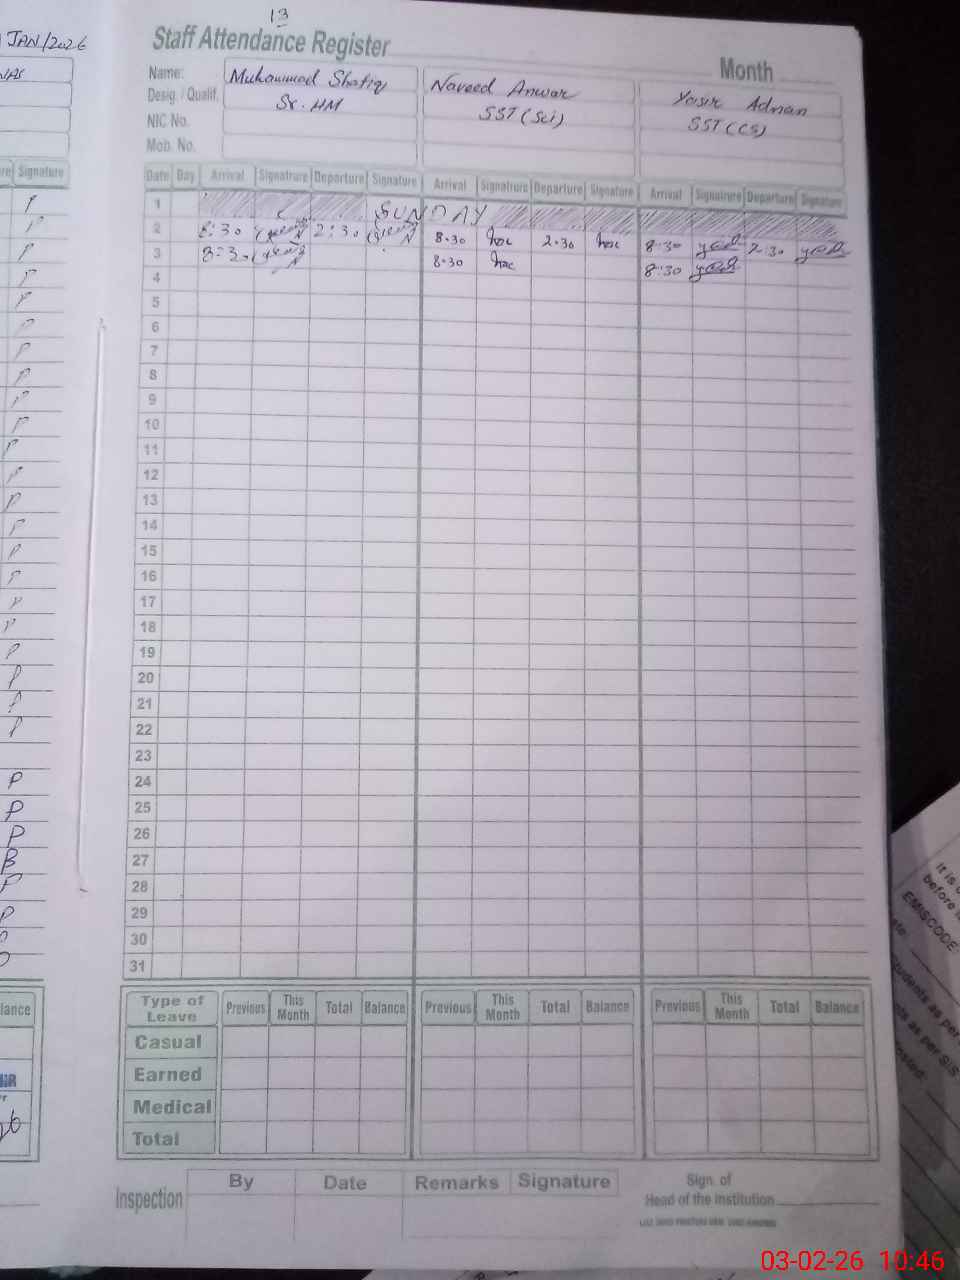 JAN/2026
13
Staff Attendance Register
Month
Name: Muhammad Shafiq Naveed Anwar Yasir Adnan
Desig. / Qualif. Sr. HM SST (Sci) SST (CS)
NIC No.
Mob. No.
Signature
Date Day Arrival Signatrure Departure Signature Arrival Signatrure Departure Signature Arrival Signatrure Departure Signature
1 SUNDAY
2 8:30 2:30 8.30 2.30 8:30 2:30
3 8:30 8.30 8:30
4
5
6
7
8
9
10
11
12
13
14
15
16
17
18
19
20
21
22
23
24 P
25 P
26 P
27
28 P
29 P
30
31
Type of Leave Previous This Month Total Balance Previous This Month Total Balance Previous This Month Total Balance
Casual
Earned
Medical
Total
Inspection By Date Remarks Signature
Sign. of
Head of the Institution
It is
before
EMISCODE
students as per
as per SIS
03-02-26 10:46